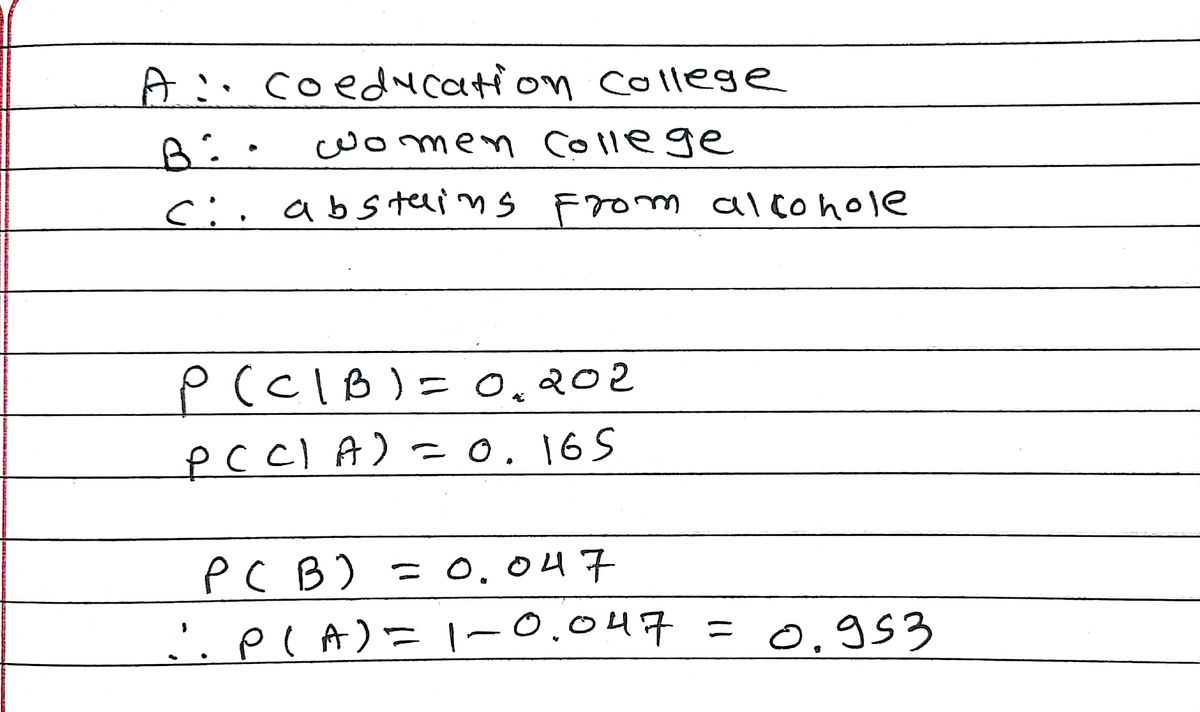 A :. Coeducation College
B :. women College
C :. abstains From alcohole
P(C|B) = 0.202
P(C|A) = 0.165
P(B) = 0.047
∴ P(A) = 1-0.047 = 0.953